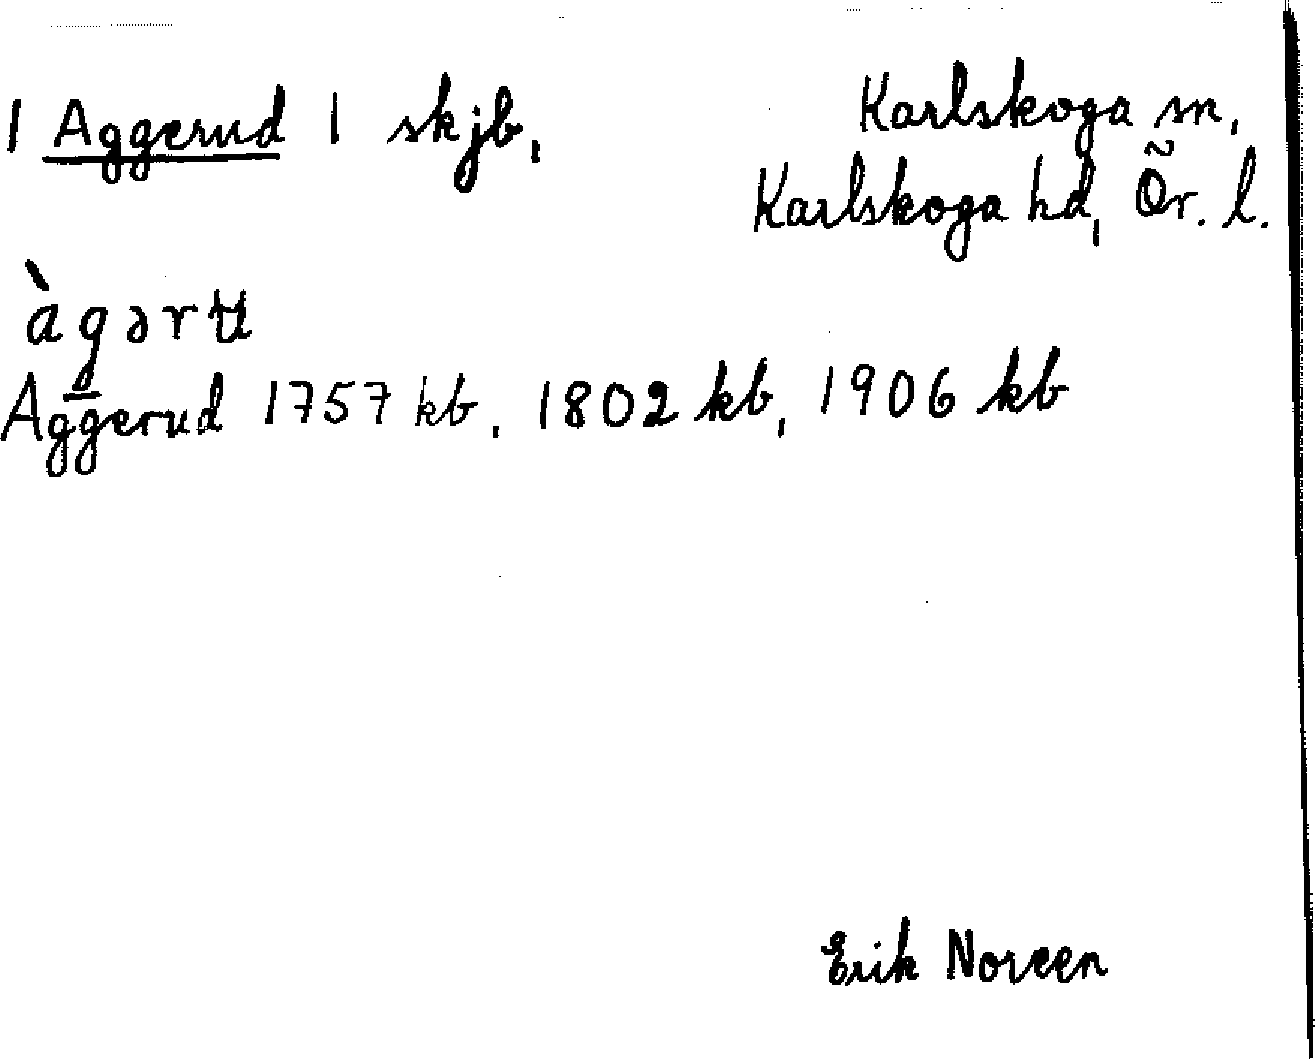 1 Aggerud 1 skjb,
Karlskoga sn,
Karlskoga hd, Ör. l.
àgərtt
Aggerud 1757 kb, 1802 kb, 1906 kb
Erik Noreen